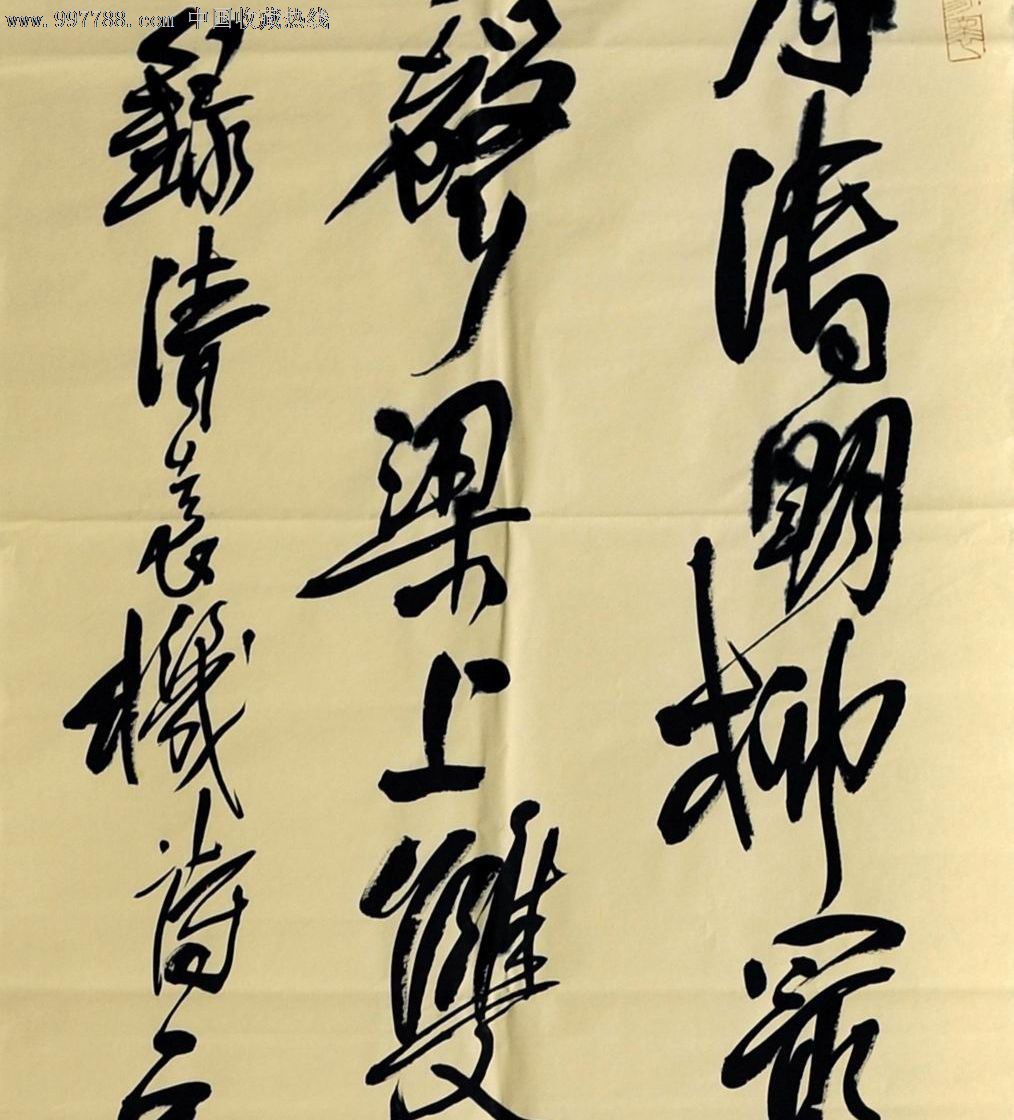 www.997788.com 中国收藏热线
月清明柳最
聲梁上雙
錄清袁機詩一